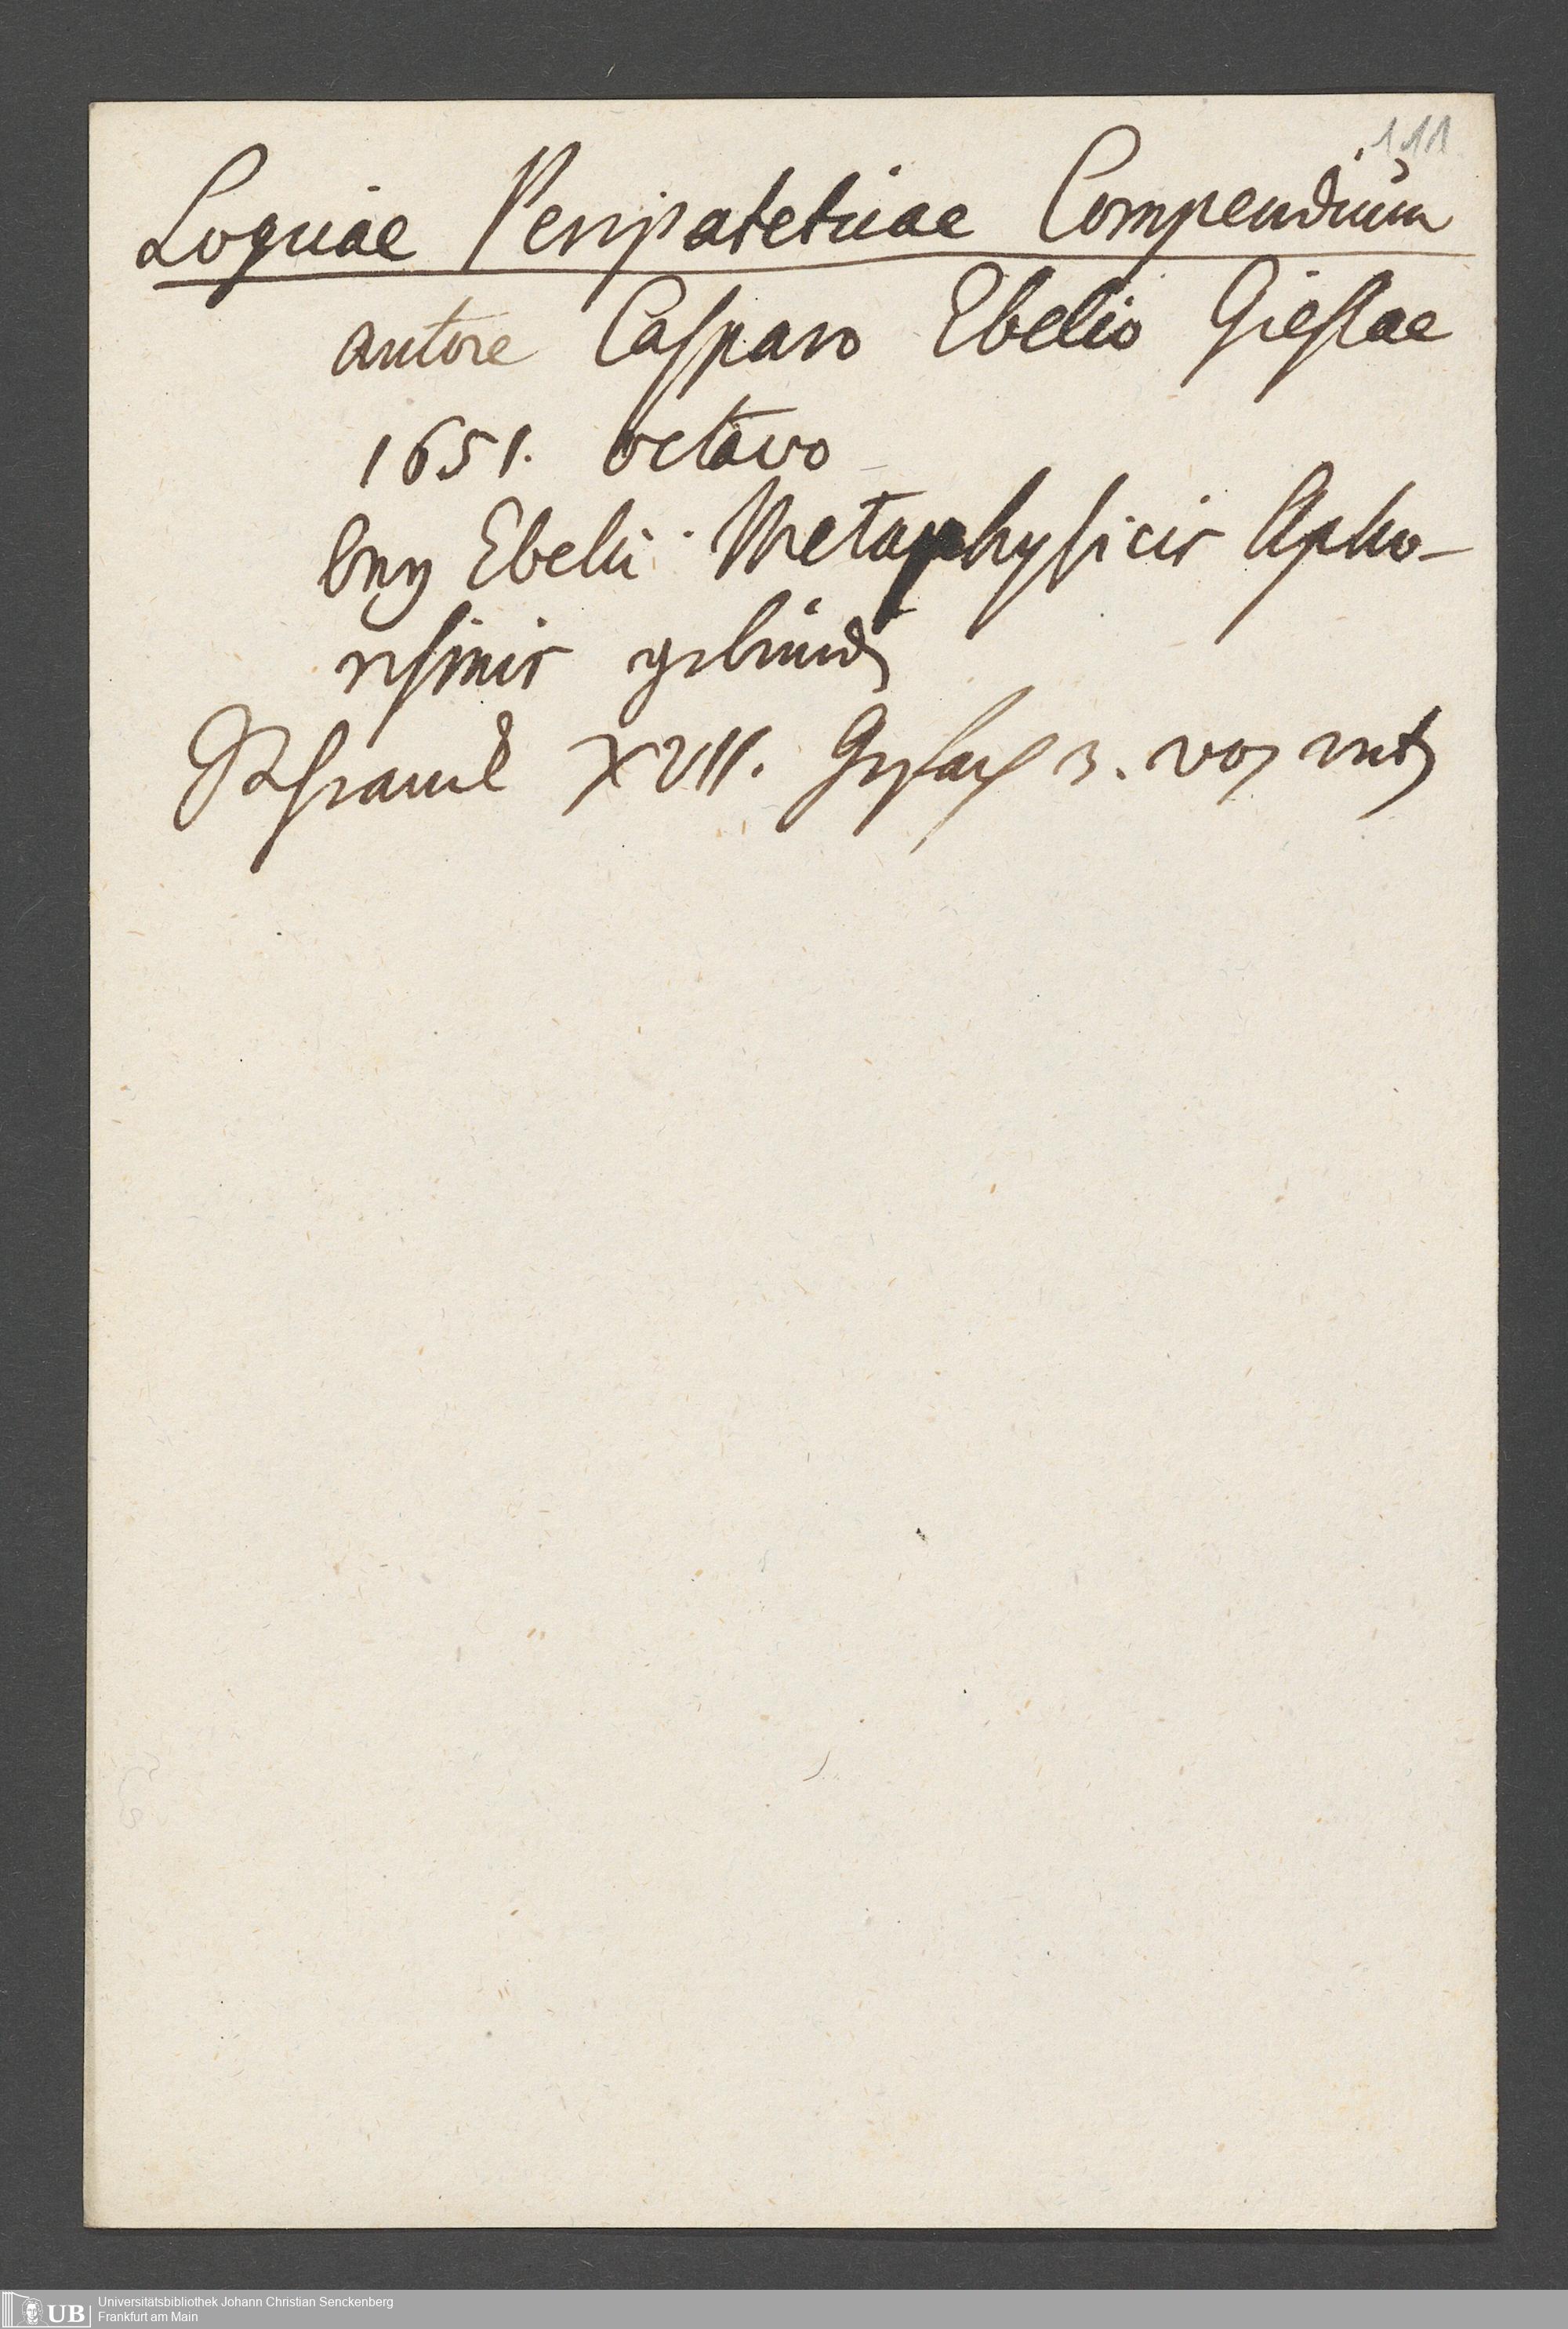 111
Logicae Peripateticae Compendium
autore Casparo Ebelio Giessae
1651. octavo
bey Ebelii Metaphysicis Apho-
rismis gebunden
Schranck XVII. Gefach 3. von unten
Universitätsbibliothek Johann Christian Senckenberg
UB Frankfurt am Main